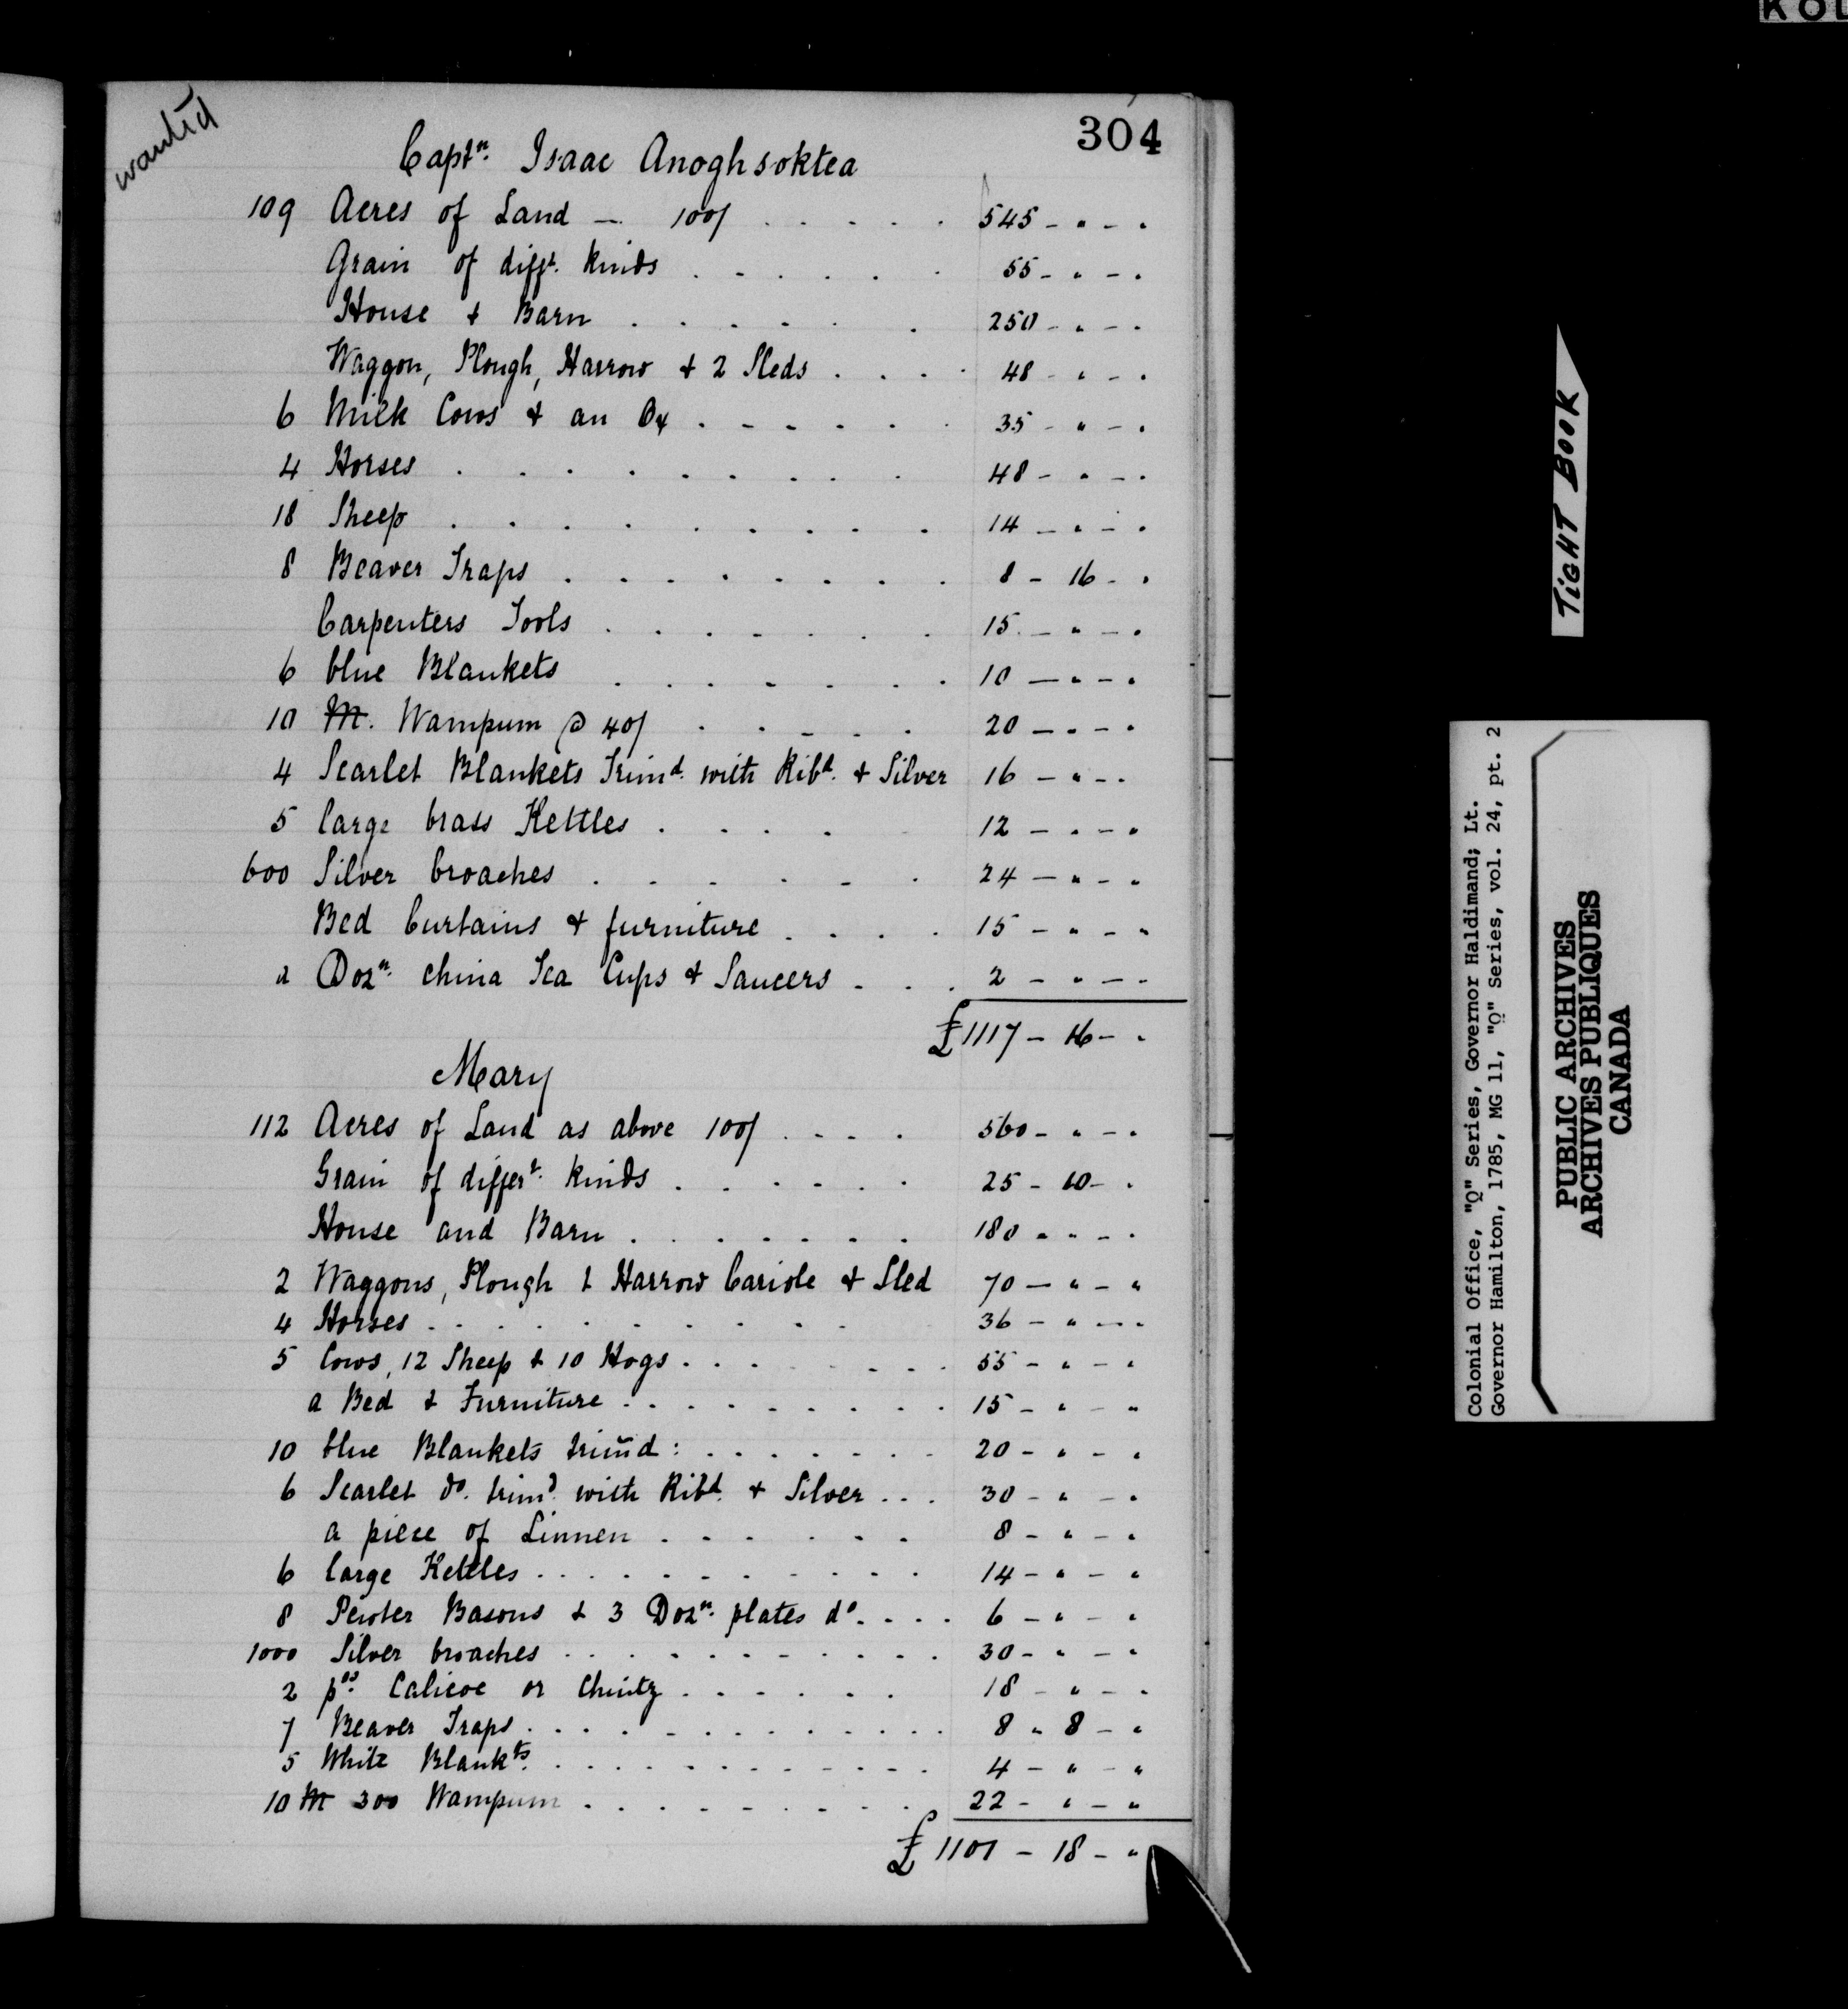 KOD
wanted
304
Captn. Isaac Anoghsoktea
109 Acres of Land — 100/ . . . . . 545 - " - "
Grain of difft. kinds . . . . . . 55 - " - "
House & Barn . . . . . . 250 - " - "
Waggon, Plough, Harrow & 2 Sleds . . . . 48 - " - "
6 Milk Cows & an Ox . . . . . . 35 - " - "
4 Horses . . . . . . . . . 48 - " - "
18 Sheep . . . . . . . . . 14 - " - "
8 Beaver Traps . . . . . . . . 8 - 16 - "
Carpenters Tools . . . . . . . 15 - " - "
6 blue Blankets . . . . . . . 10 - " - "
10 M. Wampum @ 40/ . . . . . 20 - " - "
4 Scarlet Blankets Trimd. with Ribd. & Silver 16 - " - "
5 large brass Kettles . . . . 12 - " - "
600 Silver broaches . . . . . . 24 - " - "
Bed Curtains & furniture . . . . 15 - " - "
a Dozn. china Tea Cups & Saucers . . . 2 - " - "
£1117 - 16 - "
Mary
112 Acres of Land as above 100/ . . . . 560 - " - "
Grain of differt. kinds . . . . . . 25 - 10 - "
House and Barn . . . . . . . 180 " " - "
2 Waggons, Plough & Harrow Cariole & Sled 70 - " - "
4 Horses . . . . . . . . . 36 - " - "
5 Cows, 12 Sheep & 10 Hogs . . . . . . . 55 - " - "
a Bed & Furniture . . . . . . . . . 15 - " - "
10 blue Blankets trim̄d : . . . . . . . 20 - " - "
6 Scarlet do. trimd. with Ribd. & Silver . . . 30 - " - "
a piece of Linnen . . . . . . 8 - " - "
6 large Kettles . . . . . . . . . . 14 - " - "
8 Pewter Basons & 3 Dozn. plates do. . . . 6 - " - "
1000 Silver broaches . . . . . . . . . . 30 - " - "
2 ps. Calicoe or Chintz . . . . . . 18 - " - "
7 Beaver Traps . . . . . . . . . . 8 " 8 - "
5 White Blankts. . . . . . . . . . . 4 - " - "
10 M 300 Wampum . . . . . . . . . 22 - " - "
£ 1101 - 18 - "
TiGHT BOOK
Colonial Office, "Q" Series, Governor Haldimand; Lt.
Governor Hamilton, 1785, MG 11, "Q" Series, vol. 24, pt. 2
PUBLIC ARCHIVES
ARCHIVES PUBLIQUES
CANADA